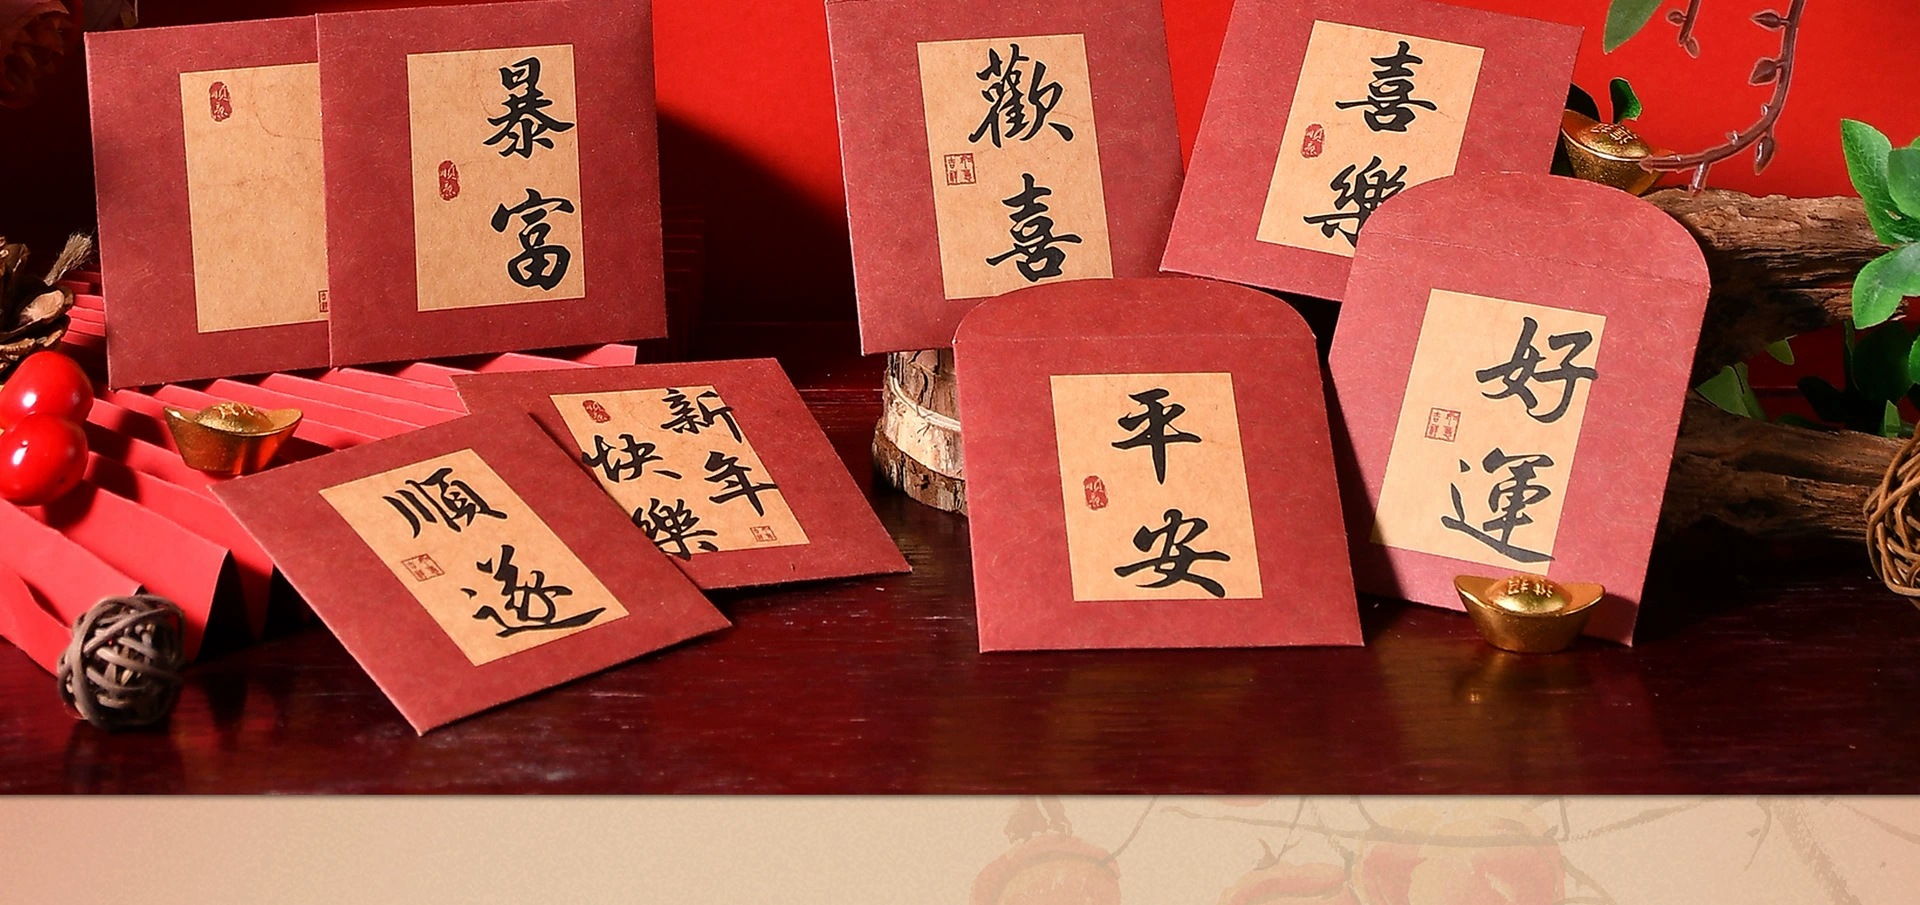 暴富
歡喜
喜樂
好運
平安
新年
快樂
順遂